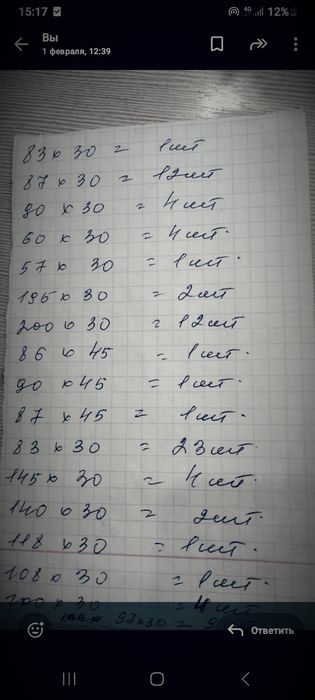 15:17 4G 12%
Вы
1 февраля, 12:39
83 х 30 = 1 шт
87 х 30 = 12 шт
90 х 30 = 4 шт
60 х 30 = 4 шт.
57 х 30 = 1 шт.
195 х 30 = 2 шт
200 х 30 = 12 шт
86 х 45 = 1 шт.
90 х 45 = 1 шт.
87 х 45 = 1 шт.
83 х 30 = 23 шт.
145 х 30 = 4 шт.
140 х 30 = 2 шт.
118 х 30 = 1 шт.
108 х 30 = 1 шт.
200 х 30 = 4 шт
97х30 =
Ответить